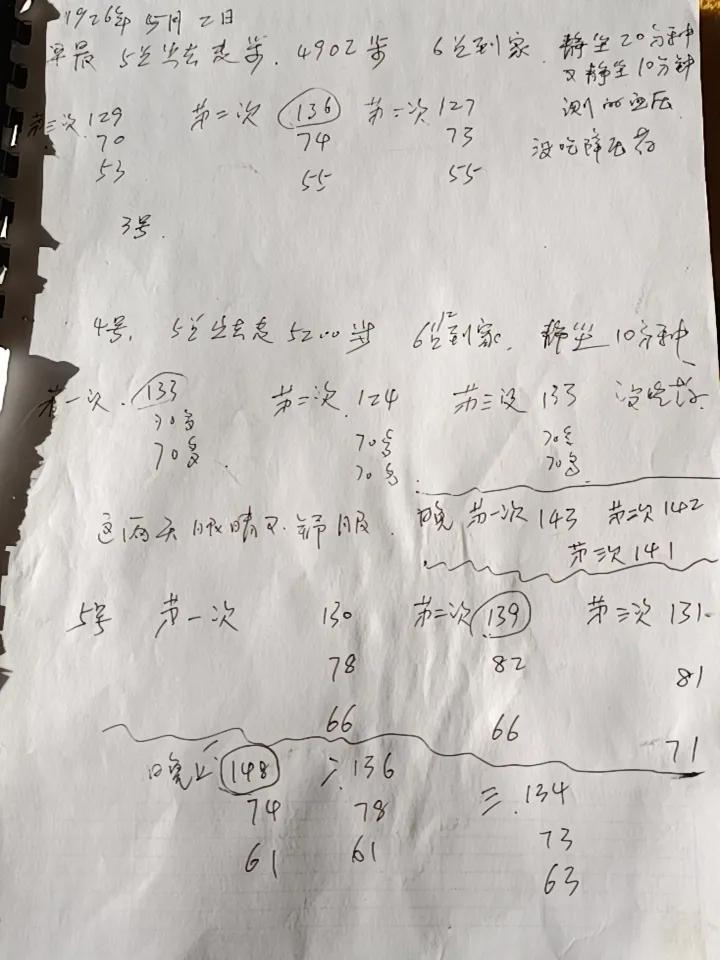 1926年5月2日
早晨 5点出去走步. 4902步 6点到家. 静坐20分钟
又静坐10分钟
测的血压
没吃降压药
第一次 129 第二次 136 第三次 127
70 74 73
53 55 55
3号.
4号, 5点出去走5200步 6点12到家, 静坐10分钟
第一次. 133 第二次. 124 第三次 133 没吃药.
70多 70多 70多
70多. 70多 70多
这两天眼睛不舒服. 晚 第一次 143 第二次 142
第三次 141
5号 第一次 130 第二次 139 第三次 131.
78 82 81
66 66 71
晚上 一 148 二. 136 三. 134
74 78 73
61 61 63